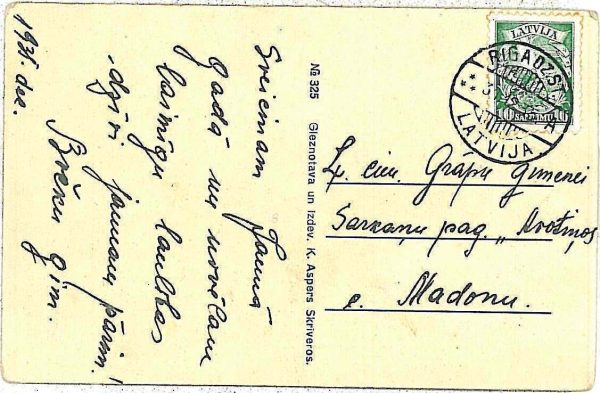 1935. dec.
Sveicinam Jaunā
gadā un novēlam
laimīgu laulības
dzīvi jaunam pārim!
gim.
№ 325 Gleznotava un Izdev. K. Aspers Skriveros.
LATVIJA
10 SANTIMU 10
RIGA DZ.ST.
LATVIJA
L. cien. Grāpu ģimenei
Sarkaņu pag. „Avotiņos
c. Madonu.